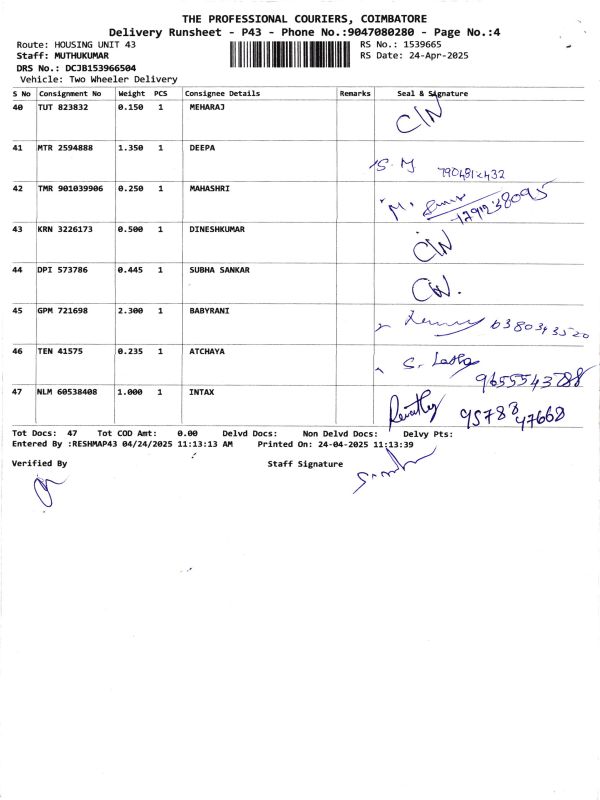 THE PROFESSIONAL COURIERS, COIMBATORE
Delivery Runsheet - P43 - Phone No.:9047080280 - Page No.:4
Route: HOUSING UNIT 43 RS No.: 1539665
Staff: MUTHUKUMAR RS Date: 24-Apr-2025
DRS No.: DCJB153966504
Vehicle: Two Wheeler Delivery
S No Consignment No Weight PCS Consignee Details Remarks Seal & Signature
40 TUT 823832 0.150 1 MEHARAJ C/N
41 MTR 2594888 1.350 1 DEEPA S. M
42 TMR 901039906 0.250 1 MAHASHRI M.
43 KRN 3226173 0.500 1 DINESHKUMAR C/N
44 DPI 573786 0.445 1 SUBHA SANKAR
45 GPM 721698 2.300 1 BABYRANI 6380343520
46 TEN 41575 0.235 1 ATCHAYA S. Latha 9655543788
47 NLM 60538408 1.000 1 INTAX Revathy 95788 47668
Tot Docs: 47 Tot COD Amt: 0.00 Delvd Docs: Non Delvd Docs: Delvy Pts:
Entered By :RESHMAP43 04/24/2025 11:13:13 AM Printed On: 24-04-2025 11:13:39
Verified By Staff Signature